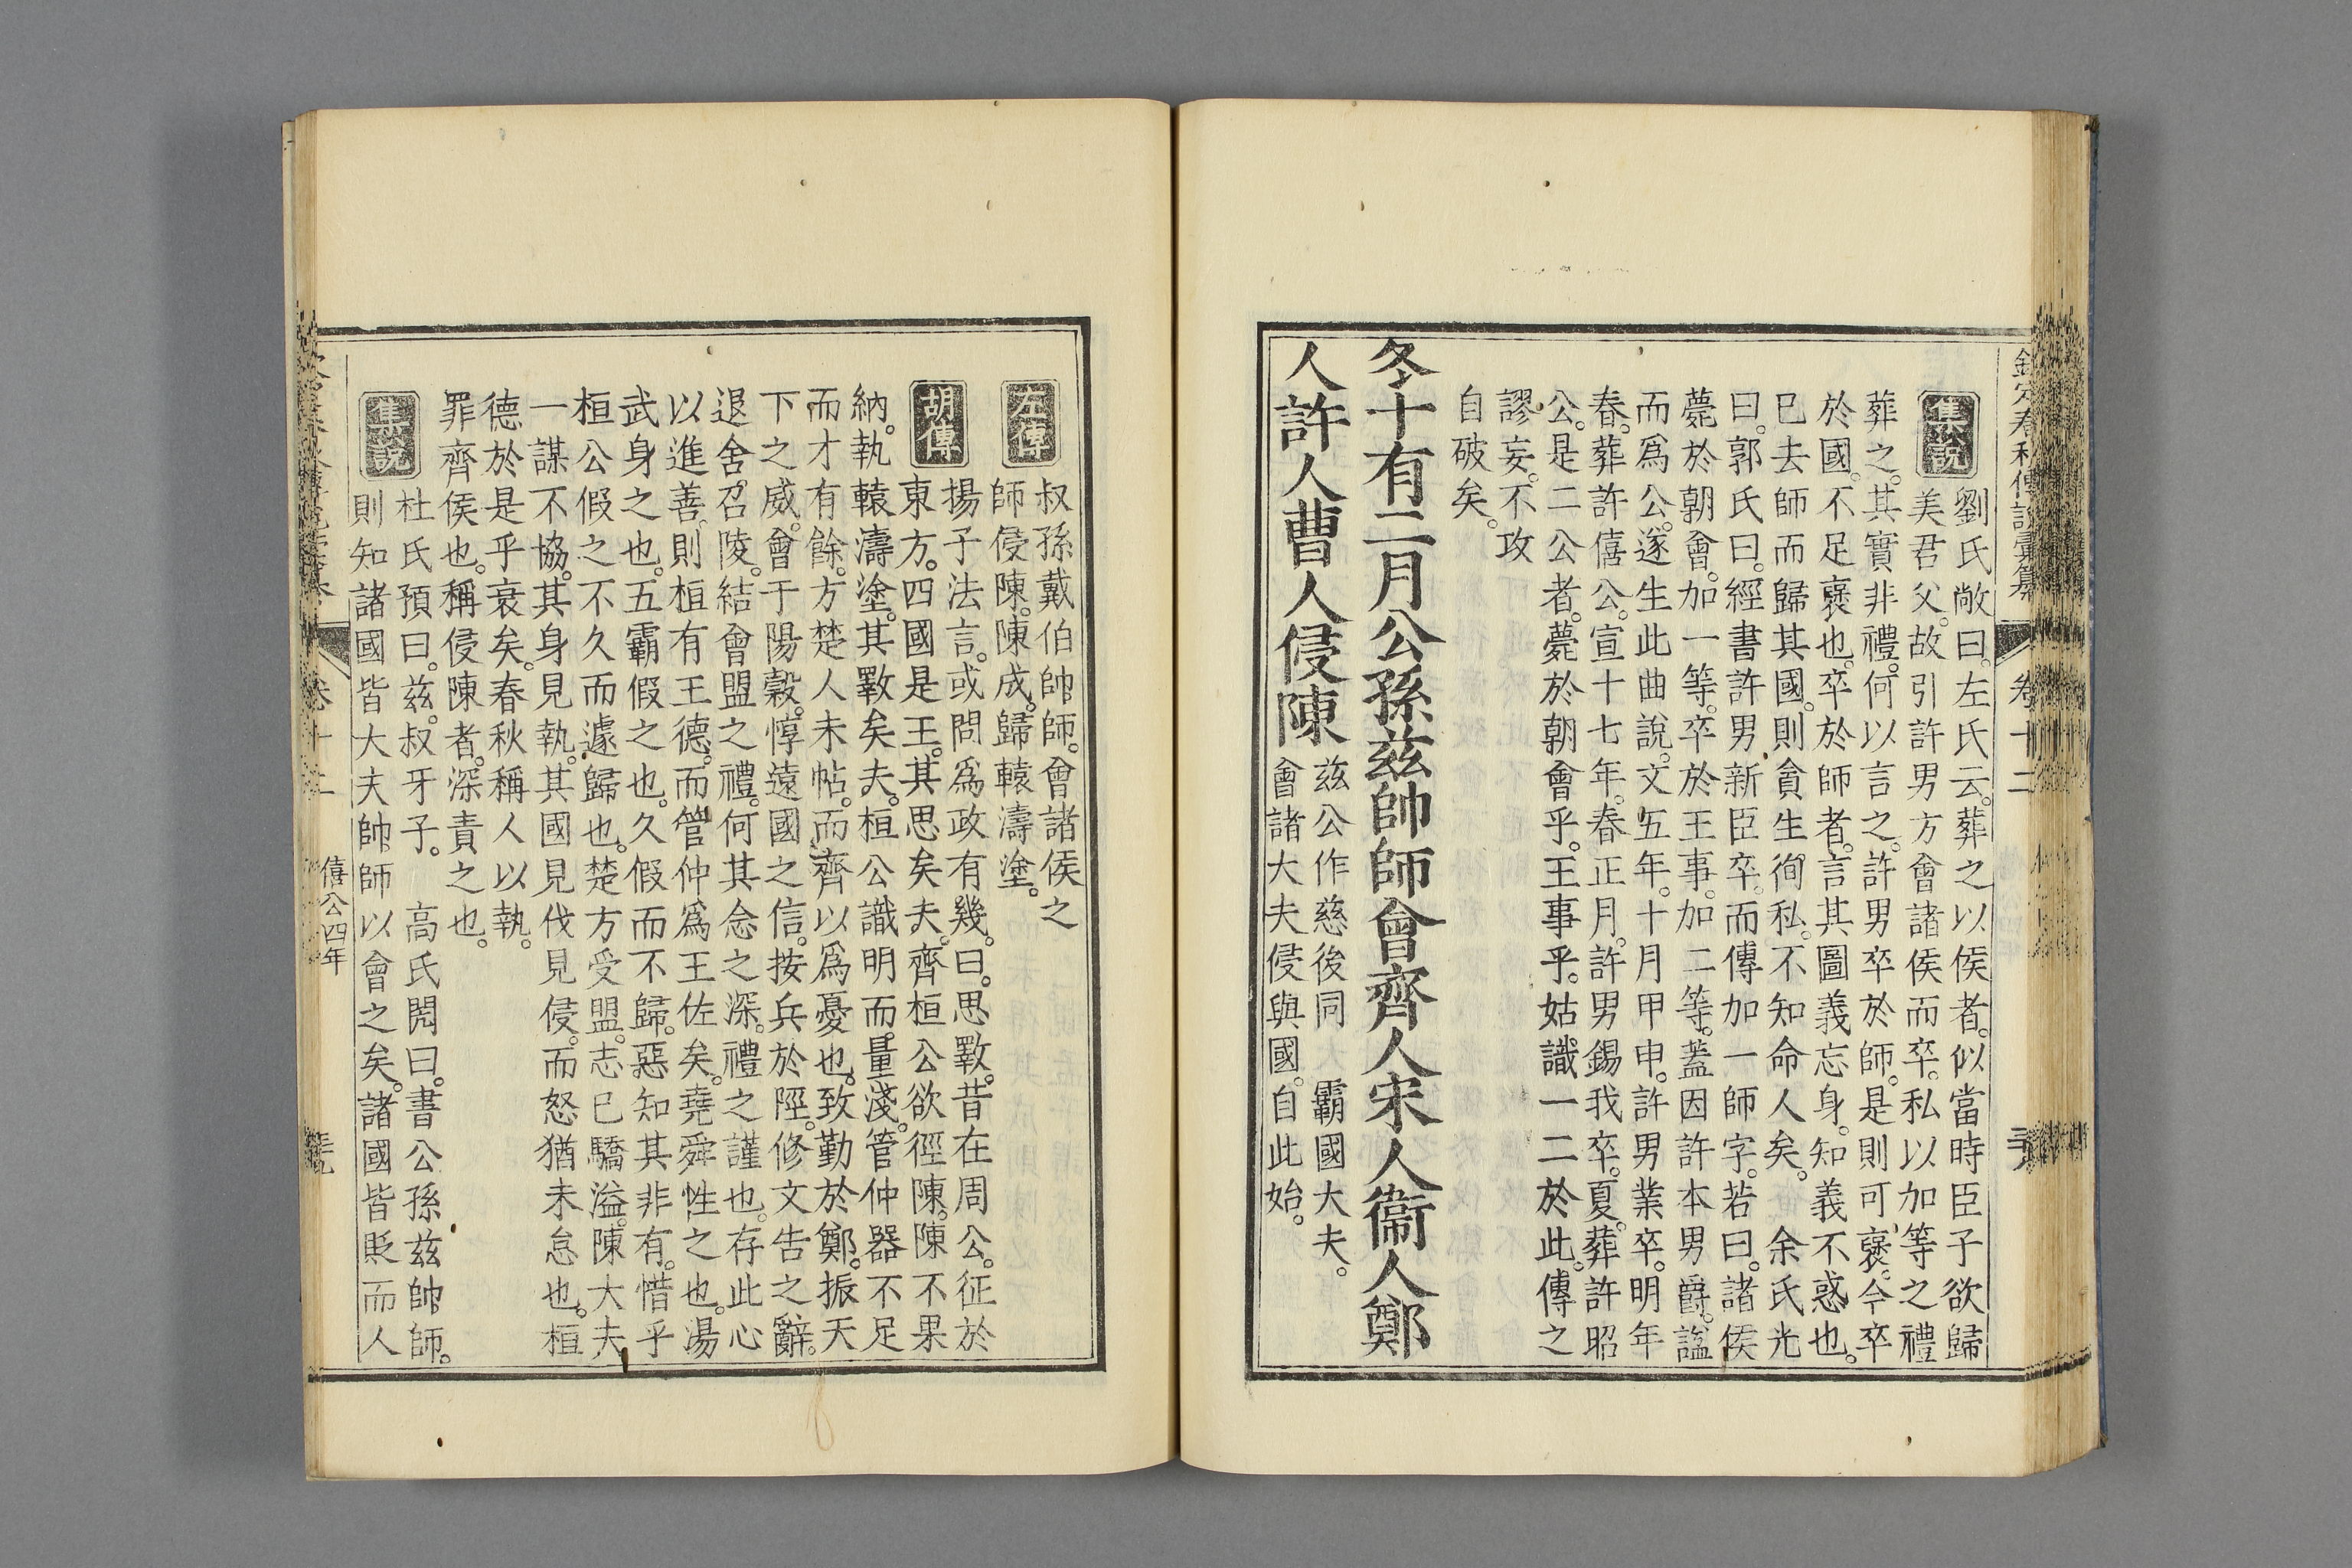 欽定春秋傳說彙纂 卷十二
集說
劉氏敞曰。左氏云。葬之以侯者。似當時臣子欲歸
美君父。故引許男方會諸侯而卒。私以加等之禮
葬之。其實非禮。何以言之。許男卒於師。是則可襃。今卒
於國。不足襃也。卒於師者。言其圖義忘身。知義不惑也。
已去師而歸其國。則貪生徇私。不知命人矣。 余氏光
曰。郭氏曰。經書許男新臣卒。而傳加一師字。若曰。諸侯
薨於朝會。加一等。卒於王事。加二等。蓋因許本男爵。諡
而爲公。遂生此曲說。文五年。十月甲申。許男業卒。明年
春。葬許僖公。宣十七年。春正月。許男錫我卒。夏。葬許昭
公。是二公者。薨於朝會乎。王事乎。姑識一二於此。傳之
謬妄。不攻
自破矣。
冬十有二月公孫茲帥師會齊人宋人衞人鄭
人許人曹人侵陳
茲公作慈後同 霸國大夫。
會諸大夫侵與國。自此始。
左傳
叔孫戴伯帥師。會諸侯之
師侵陳。陳成。歸轅濤塗。
胡傳
揚子法言。或問爲政有幾。曰。思斁。昔在周公。征於
東方。四國是王。其思矣夫。齊桓公欲徑陳。陳不果
納。執轅濤塗。其斁矣夫。桓公識明而。量淺。管仲器不足
而才有餘。方楚人未帖。而齊以爲憂也。致勤於鄭。振天
下之威。會于陽穀。惇遠國之信。按兵於陘。修文告之辭。
退舍。召陵。結會盟之禮。何其念之深。禮之謹也。存此心
以進善。則桓有王德。而管仲爲王佐矣。堯舜性之也。湯
武身之也。五霸假之也。久假而不歸。惡知其非有。惜乎
桓公假之不久而遽歸也。楚方受盟。志已驕溢。陳大夫
一謀不協。其身見執。其國見伐見侵。而怒猶未怠也。桓
德於是乎衰矣。春秋稱人以執。
罪齊侯也。稱侵陳者。深責之也。
集說
杜氏預曰。茲。叔牙子。 高氏閌曰。書公孫茲帥師。
則知諸國皆大夫帥師以會之矣。諸國皆貶而人
卷十二 僖公四年